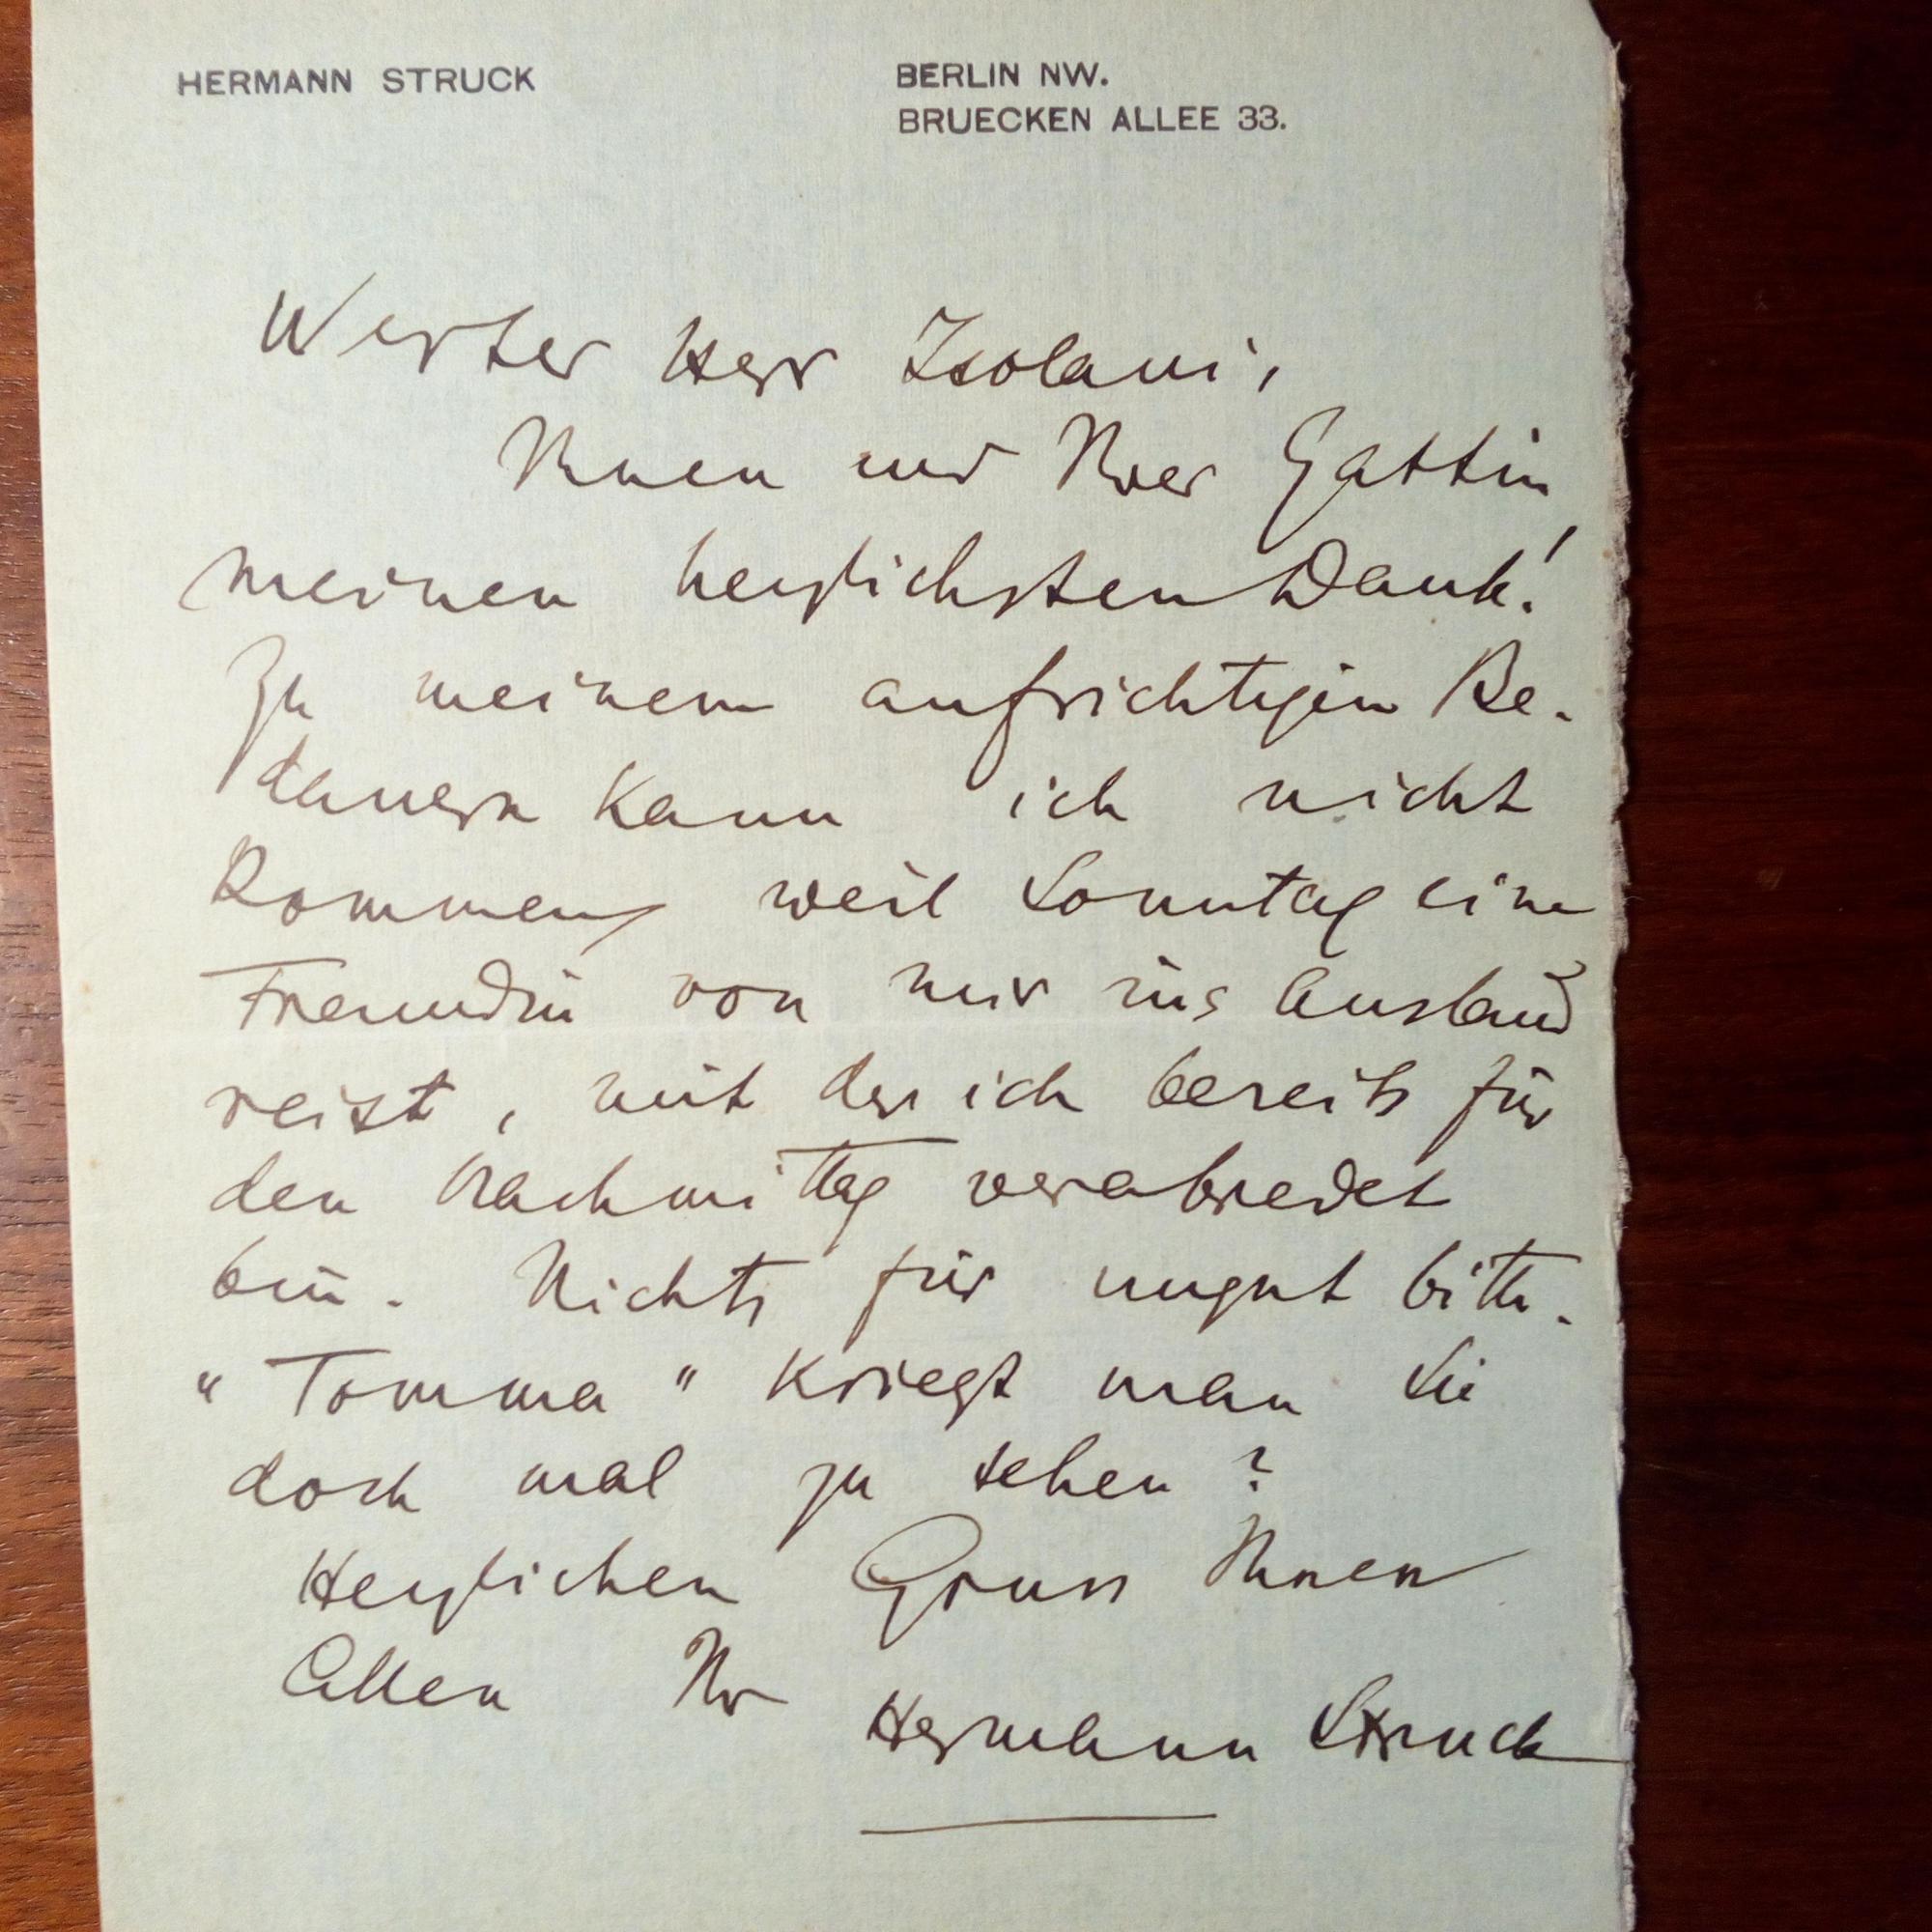 HERMANN STRUCK
BERLIN NW.
BRUECKEN ALLEE 33.
Werter Herr Isolani,
Ihnen und Ihrer Gattin
meinen herzlichsten Dank!
Zu meinem aufrichtigen Be-
dauern kann ich nicht
kommen, weil Sonntag eine
Freundin von mir ins Ausland
reist, mit der ich bereits für
den Nachmittag verabredet
bin. Nichts für ungut bitte.
"Tomma" kriegt man Sie
doch mal zu sehen?
Herzlichen Gruss Ihnen
Allen Ihr
Hermann Struck